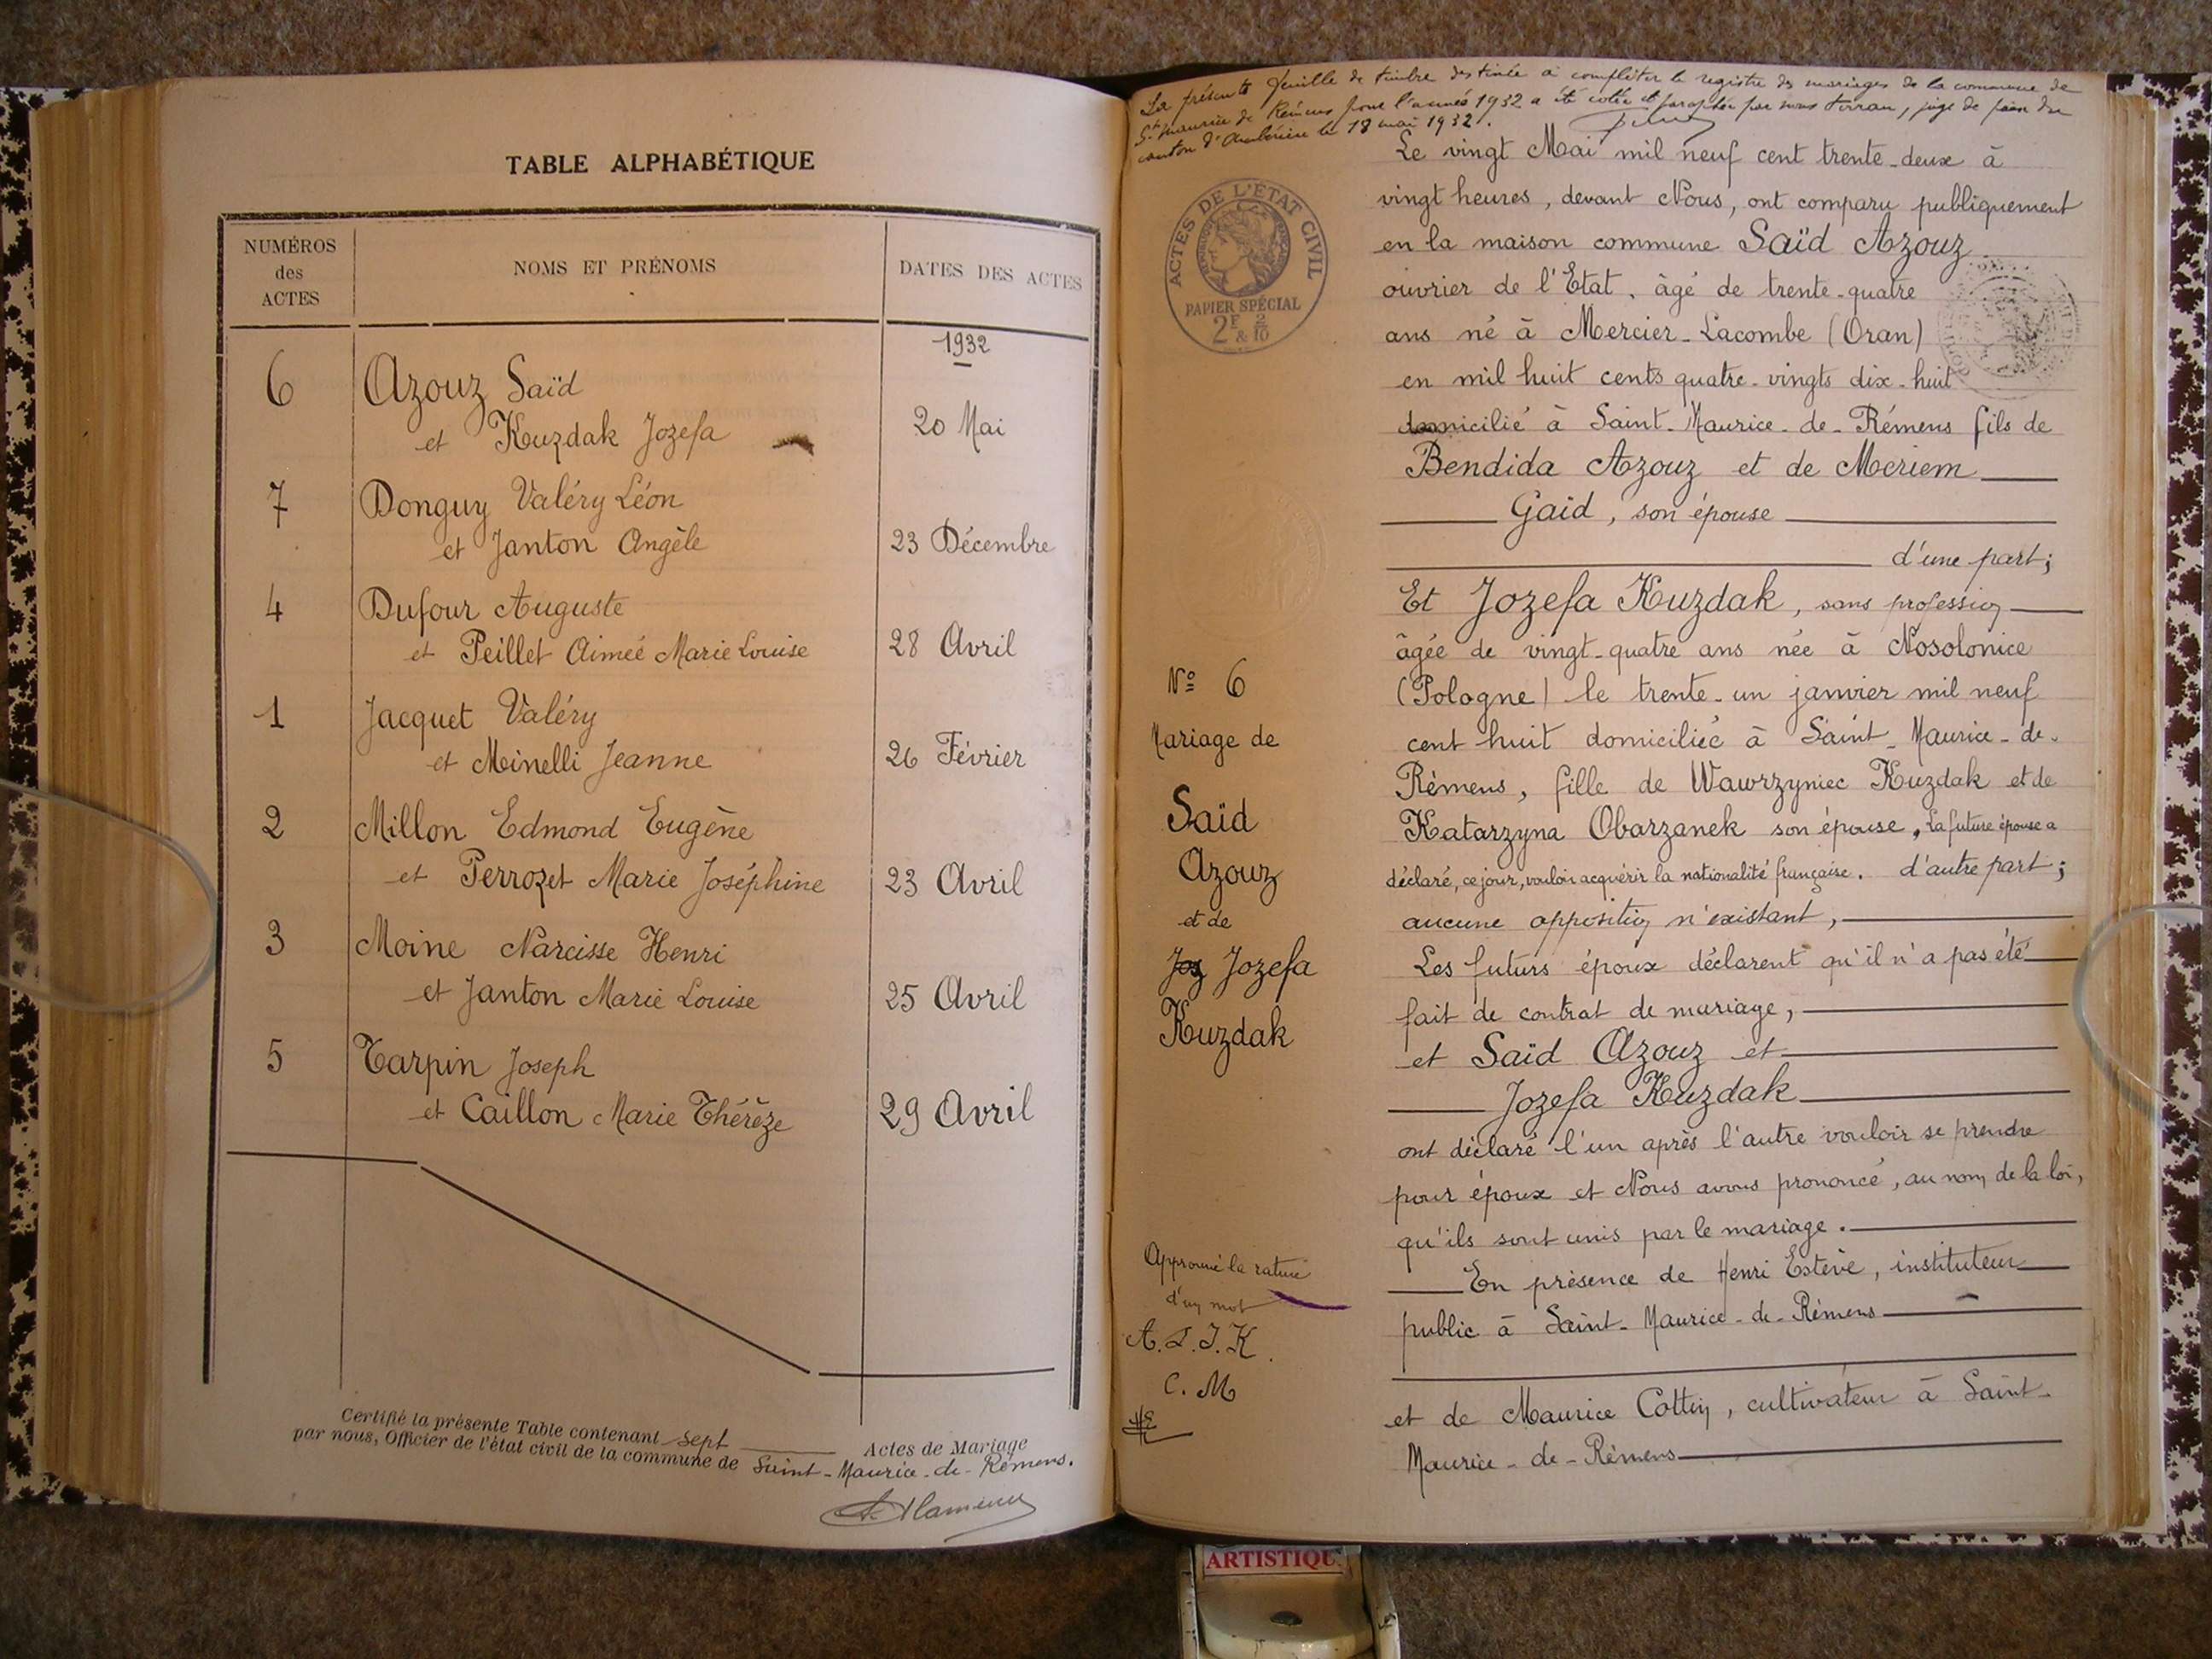 TABLE ALPHABÉTIQUE
NUMÉROS
des
ACTES
NOMS ET PRÉNOMS
DATES DES ACTES
1932
6 Azouz Saïd
et Kuzdak Jozefa 20 Mai
7 Donguy Valéry Léon
et Janton Angèle 23 Décembre
4 Dufour Auguste
et Peillet Aimée Marie Louise 28 Avril
1 Jacquet Valéry
et Minelli Jeanne 26 Février
2 Millon Edmond Eugène
et Perrozet Marie Joséphine 23 Avril
3 Moine Narcisse Henri
et Janton Marie Louise 25 Avril
5 Tarpin Joseph
et Caillon Marie Thérèze 29 Avril
Certifié la présente Table contenant sept Actes de Mariage
par nous, Officier de l'état civil de la commune de Saint-Maurice-de-Rémens.
La présente feuille de timbre destinée à compléter le registre des mariages de la commune de
St Maurice de Rémens pour l'année 1932 a été cotée et paraphée par nous, juge de paix du
canton d'Ambérieu le 18 mai 1932.
ACTES DE L'ÉTAT CIVIL
PAPIER SPÉCIAL
2F & 2/10
Le vingt Mai mil neuf cent trente-deux à
vingt heures, devant Nous, ont comparu publiquement
en la maison commune Saïd Azouz
ouvrier de l'Etat, âgé de trente-quatre
ans né à Mercier-Lacombe (Oran)
en mil huit cents quatre-vingts dix-huit
domicilié à Saint-Maurice-de-Rémens fils de
Bendida Azouz et de Meriem
Gaid, son épouse
d'une part;
Et Jozefa Kuzdak, sans profession
âgée de vingt-quatre ans née à Nosolonice
(Pologne) le trente-un janvier mil neuf
cent huit domiciliée à Saint-Maurice-de-
Rémens, fille de Wawrzyniec Kuzdak et de
Katarzyna Obarzanek son épouse, La future épouse a
déclaré, ce jour, vouloir acquérir la nationalité française. d'autre part;
aucune opposition n'existant,
Les futurs époux déclarent qu'il n'a pas été
fait de contrat de mariage,
et Saïd Azouz et
Jozefa Kuzdak
ont déclaré l'un après l'autre vouloir se prendre
pour époux et Nous avons prononcé, au nom de la loi,
qu'ils sont unis par le mariage.
En présence de Henri Estève, instituteur
public à Saint-Maurice-de-Rémens
et de Maurice Cottin, cultivateur à Saint-
Maurice-de-Rémens
No 6
Mariage de
Saïd
Azouz
et de
Joz Jozefa
Kuzdak
Approuvé la rature
d'un mot
A. S. J. K.
C. M
HE
ARTISTIQU